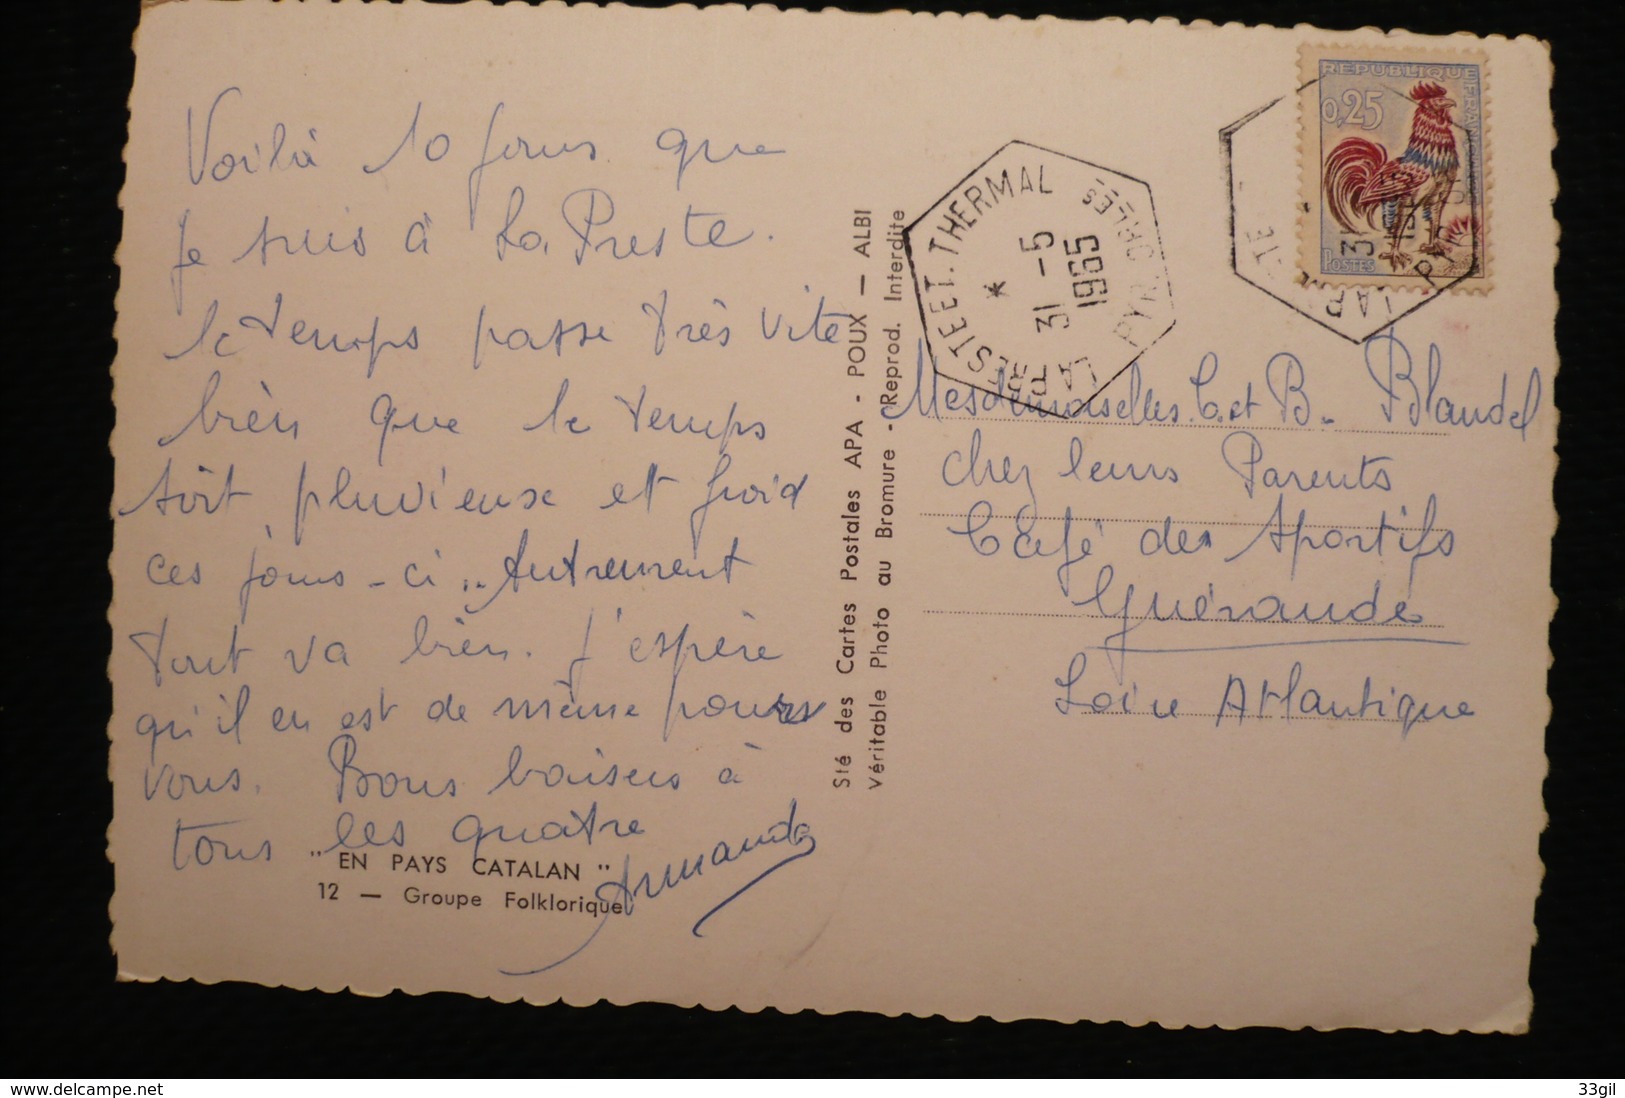 Voilà 10 jours que
je suis à La Preste.
le temps passe très vite
bien que le temps
soit pluvieuse et froid
ces jours-ci.. Autrement
tout va bien. J'espère
qu'il en est de même pour
vous. Bons baisers à
tous les quatre
Armande
" EN PAYS CATALAN "
12 — Groupe Folklorique
Sté des Cartes Postales APA - POUX — ALBI
Véritable Photo au Bromure - Reprod. Interdite
LA PRESTE ET. THERMAL
PYR. ORLES
31 - 5
1965
REPUBLIQUE FRANCAISE
0,25
POSTES
Mesdemoiselles C. et B. Blandel
chez leurs Parents
Café des Sportifs
Guérande
Loire Atlantique
delcampe.net
33gil